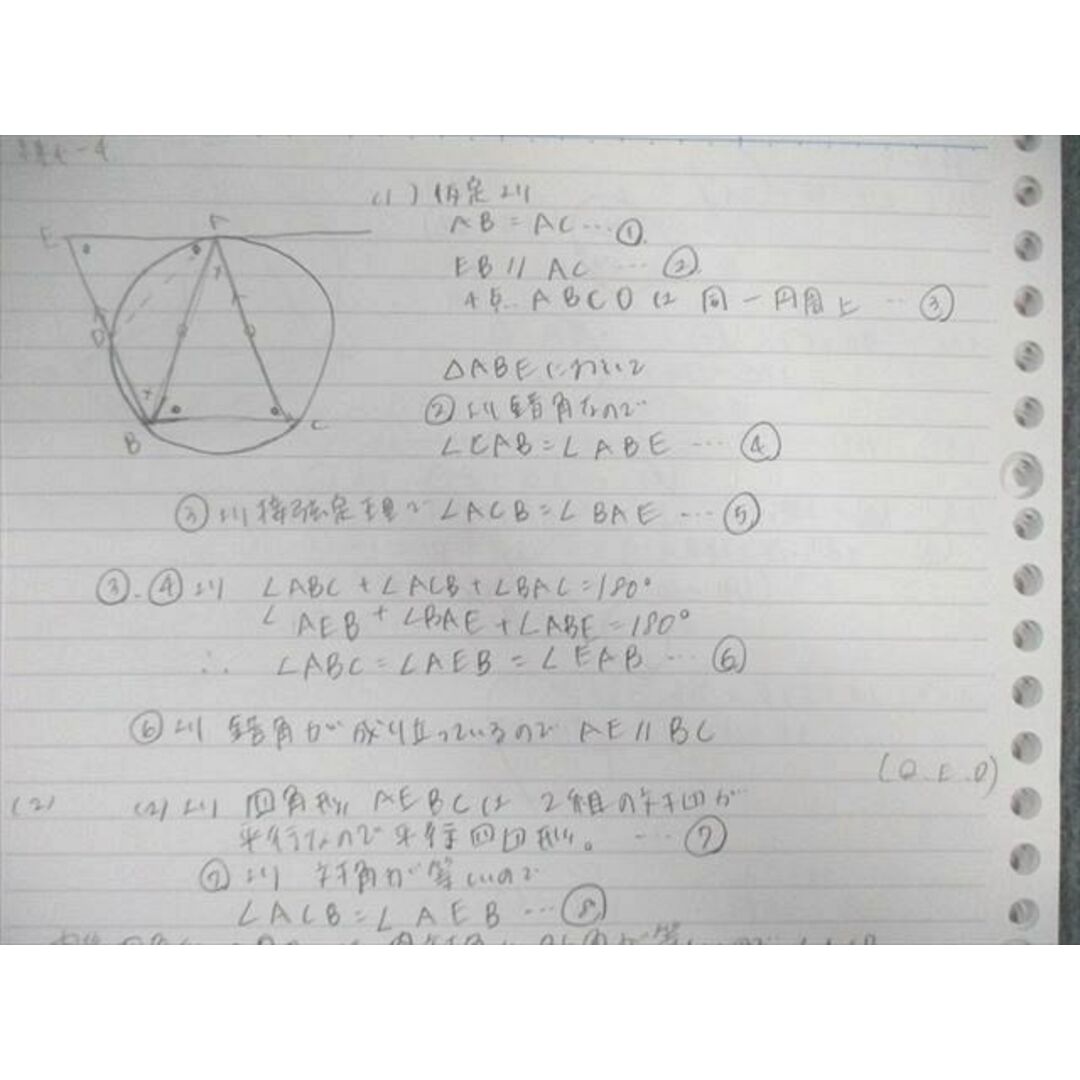 (1) 仮定より
AB = AC … ①
EB // AC … ②
4点 ABCDは 同一円周上 … ③
E
A
D
B
C
△ABEにおいて
②より錯角なので
∠CAB = ∠ABE … ④
③より接弦定理で ∠ACB = ∠BAE … ⑤
③.④より ∠ABC + ∠ACB + ∠BAC = 180°
∠AEB + ∠BAE + ∠ABE = 180°
∴ ∠ABC = ∠AEB = ∠EAB … ⑥
⑥より 錯角が成り立っているので AE // BC
(Q.E.D)
(2) (2)より 四角形 AEBCは 2組の対辺が
平行なので平行四辺形。 … ⑦
⑦より 対角が等しいので
∠ACB = ∠AEB … ⑧